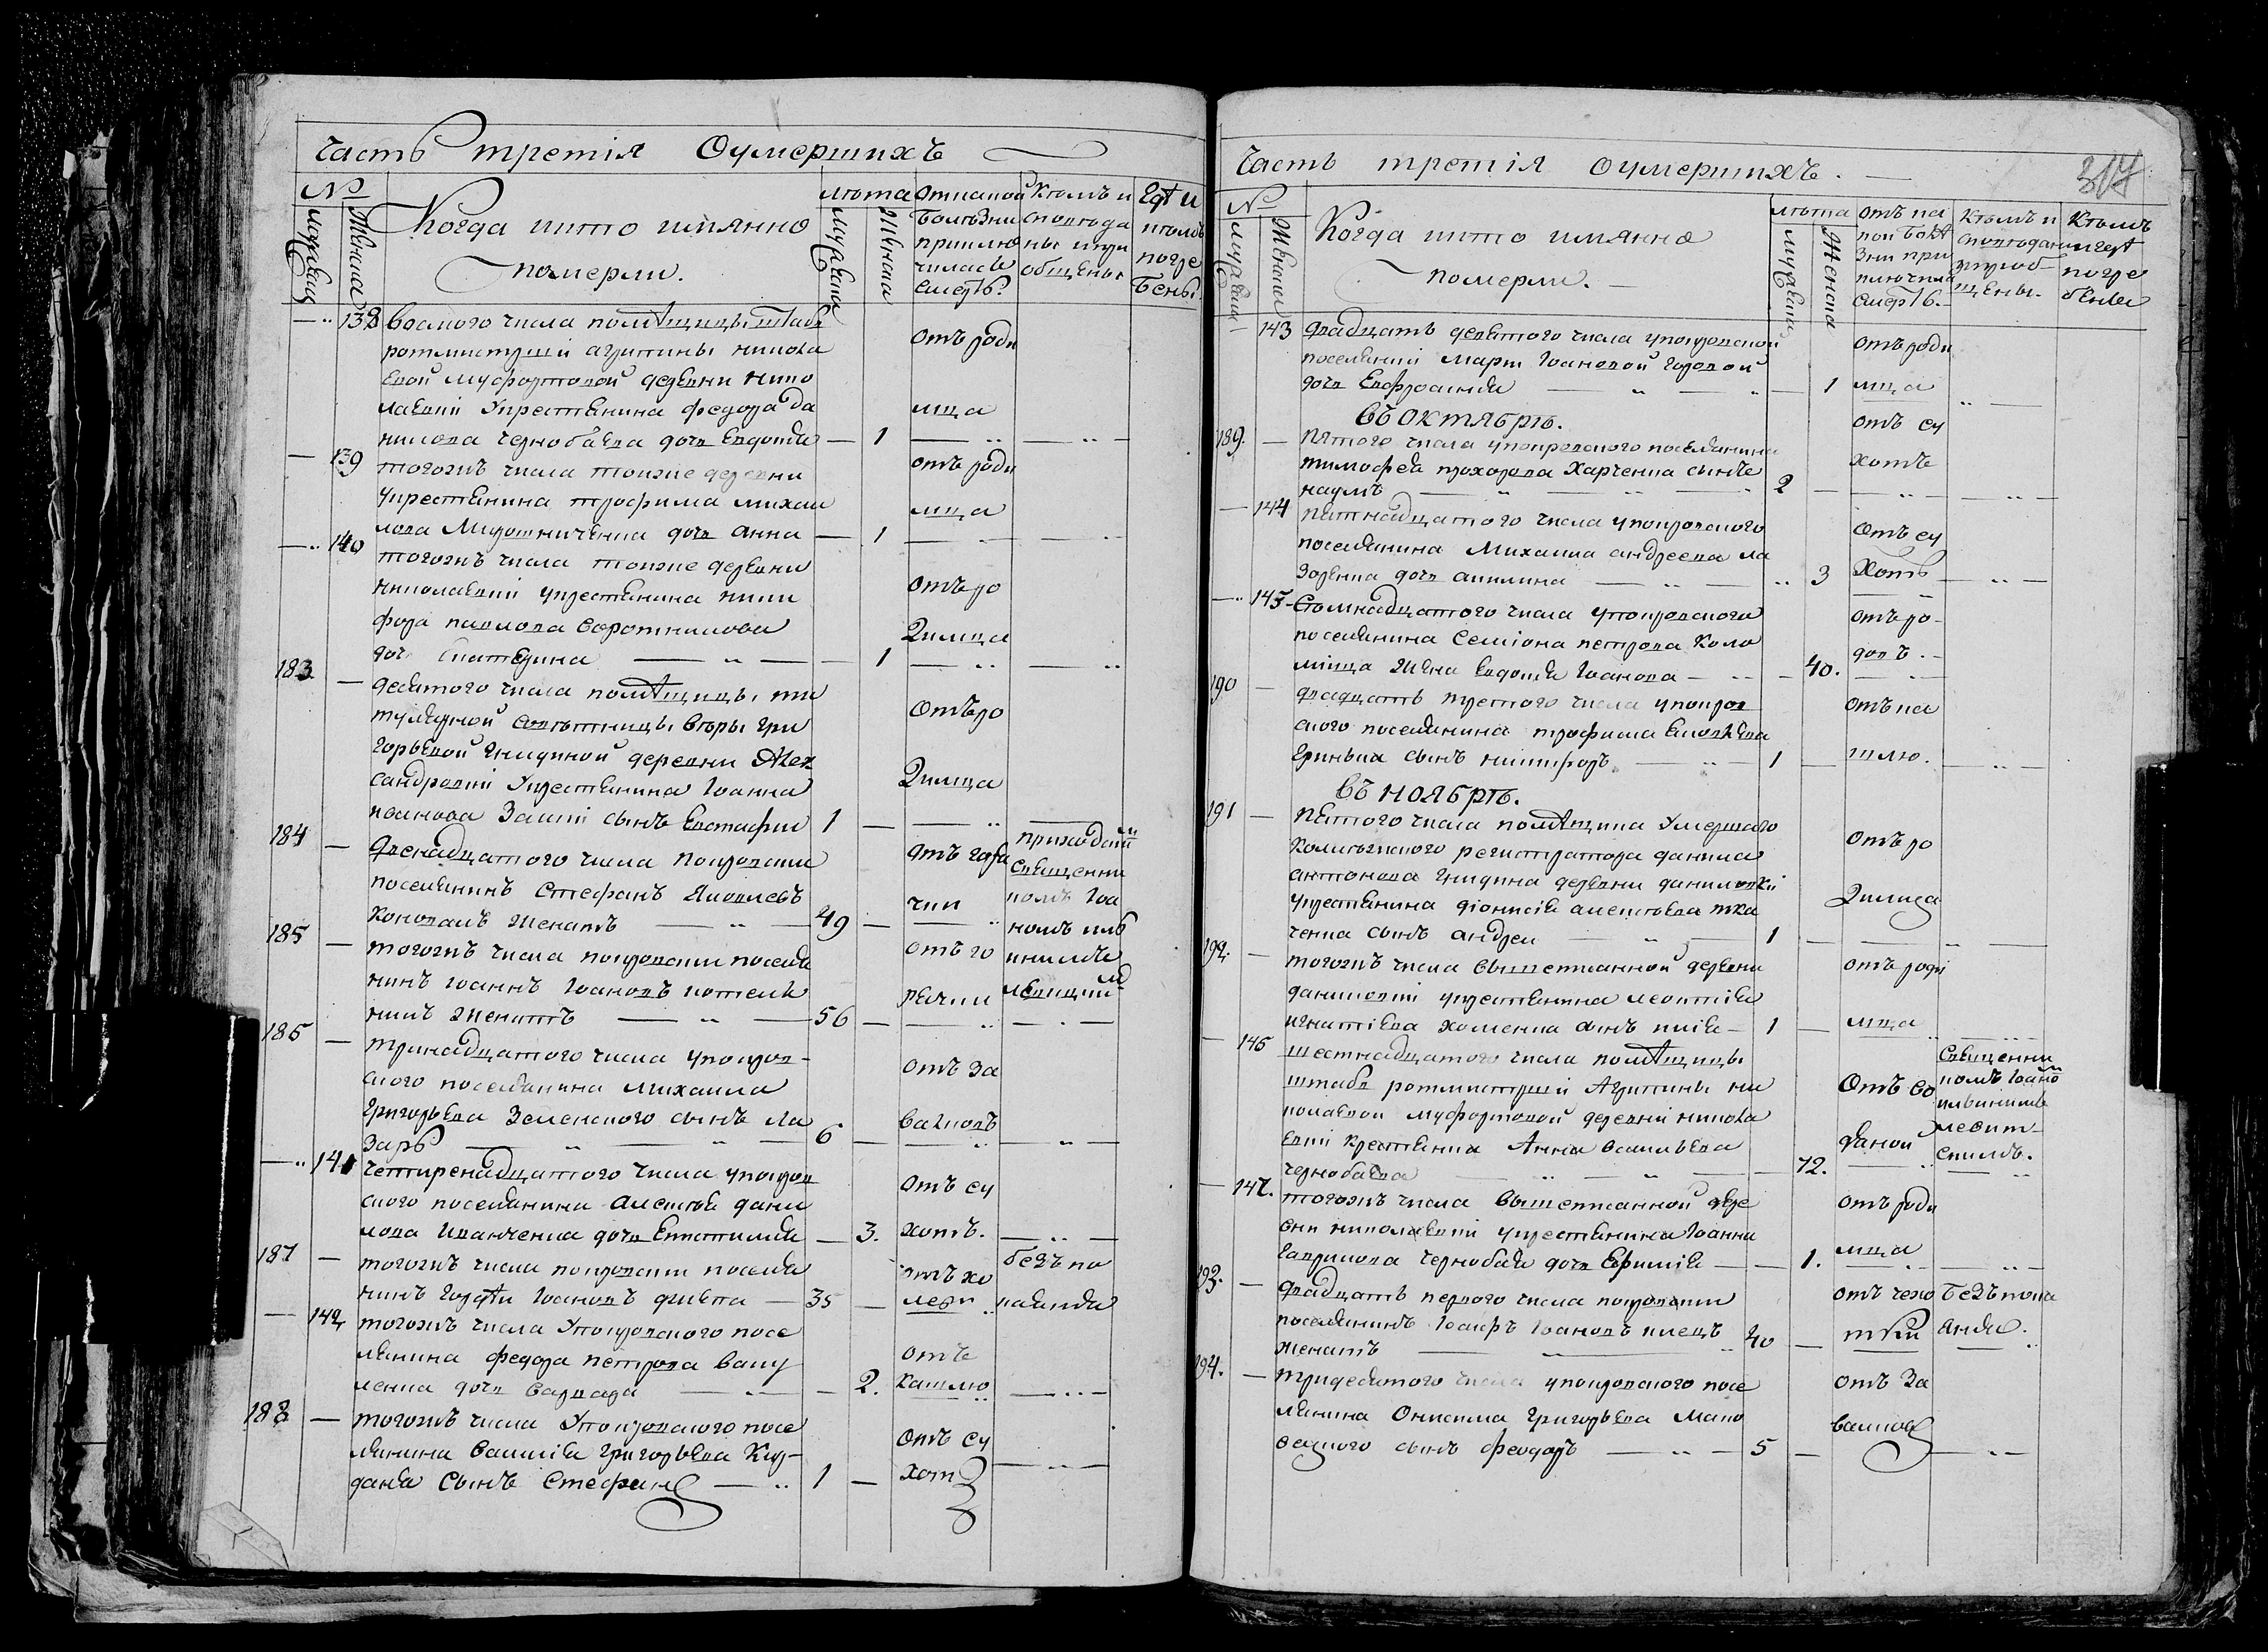 Часть третія Оумершихъ
№
Мужеска
Женска
Когда икто имянно
померли.
лѣта
Мужеска
Женска
Откакой
болѣзни
приклю
чиласи
смерть.
Кѣмъ и
споведа
ны ипри
общены
Где и
икѣмъ
погре
бены.
138 восмого числа помѣщицы штабъ
ротмистрши агрипины никола
евой деревни нико
лаевки Укрестянина федора да
нилова чернобаева дочь Евдокія — 1
отъ роди
мца
139 тогожъ числа тоижие деревни
укрестянина трофима михаи
лова Мирошниченка дочь Анна — 1
отъ роди
мца
140 тогожъ числа тоижие деревни
николаевки укрестянина ники
фора павлова воротникова
дочь Екатерина — 1
отъ ро
димца
183 десятого числа помѣщицы ти
тулярной совѣтницы веры гри
горьевой деревни Алек
сандровки Укрестянина Іоанна
сынъ Евстафии 1
Отъ ро
димца
184 двенадцатого числа покровски
поселянинъ Стефанъ Яковлевъ
Коновалъ женатъ 49
отъ горя
чки
приходски
священни
комъ Іоа
номъ
185 тогожъ числа покровски поселя
нинъ Іоаннъ Іоановъ котеля
никъ женатъ 56
отъ го
рячки
186 тринадцатого числа упокров-
ского поселянина Михаила
Григорьева Зеленского сынъ ла
зарь 6
отъ за
валковъ
141 четиренадцатого числа упокров
ского поселянина алексѣя дани
лова Иванченка дочь — 3.
отъ су
хотъ.
187 тогожъ числа покровски поселя
нинъ Іоановъ — 35
отъ хо
леры
безъ по
каянія
142 тогожъ числа Упокровского посе
лянина федора петрова ваку
ленка дочь варвара — 2.
отъ
кашлю
188 тогожъ числа Упокровского посе
лянина василія григорьева Кур-
дания сынъ Стефанъ 1
отъ су
хотъ
Часть третія оумершихъ.
317
№
Мужеска
Женска
Когда икто имянно
померли.
лѣта
Мужеска
Женска
отъ ка
кои болѣ
зни при
ключила
смерть.
Кѣмъ и
споведани
иприоб
щены.
Кѣмъ
игдѣ
погре
бени
143 двадцать девятого числа упокровской
поселянки Марѳи Іоановой Горовой
дочь Евфросинія — 1
отъ роди
мца
въ октябрѣ.
189. пятого числа упокровского поселянина
тимофея прохорова Харченка сынъ
наумъ 2
отъ су
хотъ
144 пятнадцатого числа упокровского
поселянина Михаила андреева ла
зоренка дочь акилина 3
отъ су
хотъ
145 семнадцатого числа упокровского
поселянина Семіона петрова Коло
мійца жена Евдокія Іоанова — 40.
отъ ро-
довъ.
190 двадцать третого числа упокров
ского поселянина трофима
Гринька сынъ никифоръ 1
отъ ка
шлю.
въ ноябрѣ.
191 пятого числа помѣщика Умершаго
колежского регистратора данила
антонова деревни даниловки
укрестянина діонисія алексѣева тка
ченка сынъ андреи 1
отъ ро
димца
192. тогожъ числа вышеписанной деревни
даниловки укрестянина леонтія
игнатіева хоменка сынъ илія — 1
отъ роди
мца
146 шестнадцатого числа помѣщицы
штабъ ротмистрши Агрипины ни
колаевой деревни никола
евки крестянка Анна васильева
чернобаева 72.
отъ во
дяной
священни
комъ Іоано
147. тогожъ числа вышеписанной дере
вни николаевки укрестянина Іоанна
гаврилова чернобая дочь Ефимія — 1.
отъ роди
мца
193. двадцать первого числа покровски
поселянинъ Іосифъ Іоановъ
женатъ 40
отъ чехо
тки
безъ пока
янія.
194. тридесятого числа упокровского посе
лянина Онисима григорьева Мако
сынъ феодоръ 5
отъ за
валковъ